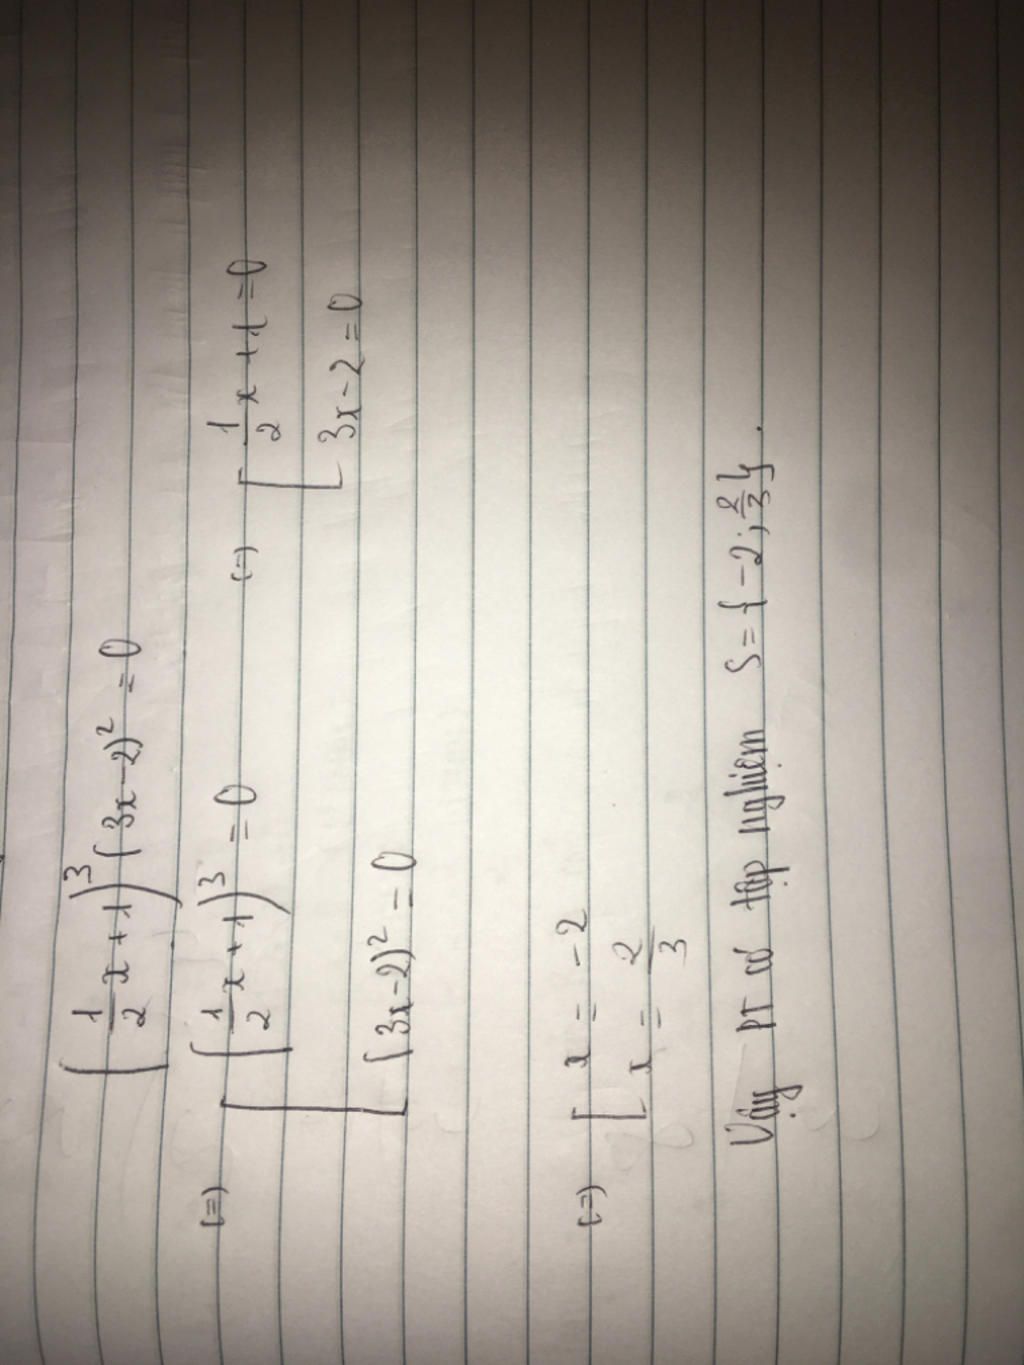 (1/2 x + 1)³ (3x - 2)² = 0
(=) [ (1/2 x + 1)³ = 0 (=) [ 1/2 x + 1 = 0
(3x - 2)² = 0 3x - 2 = 0
(=) [ x = -2
x = 2/3
Vậy PT có tập nghiệm S = { -2 ; 2/3 } .